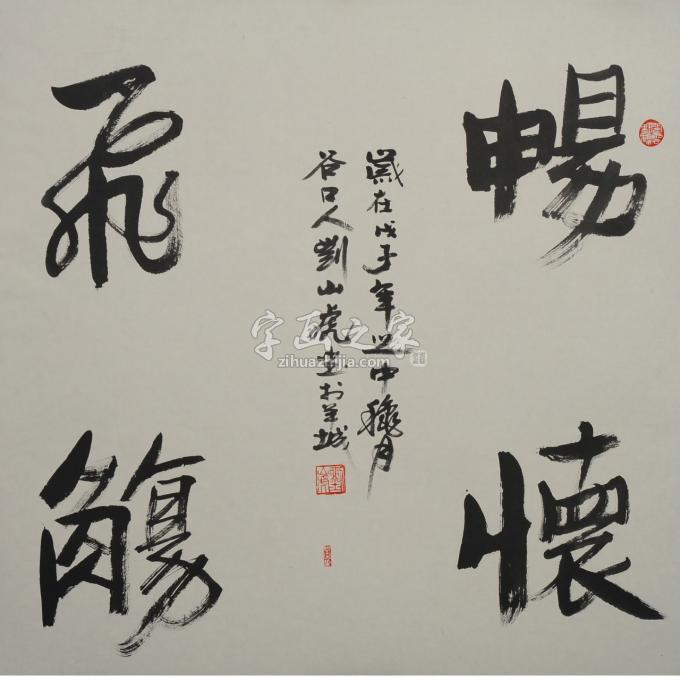 暢懷
飛觴
歲在戊子年之中穐月
谷口人劉山虎書於羊城
字画之家
zihuazhijia.com